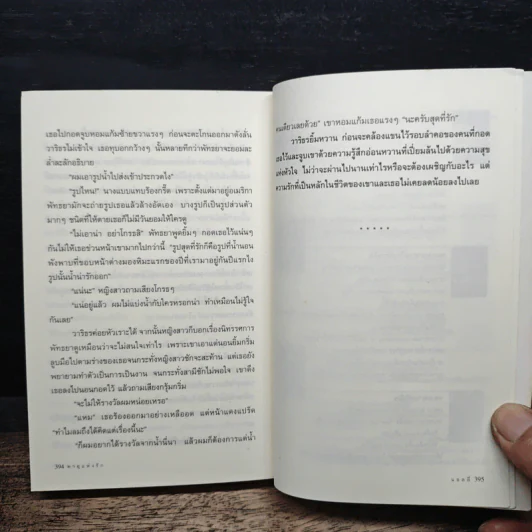 เธอไปกอดจูบหอมแก้มซ้ายขวาแรงๆ ก่อนจะตะโกนออกมาดังลั่น
วาริธรไม่เข้าใจ เธอหุบอกกว้างๆ นั้นหลายทีกว่าพัทธยาจะยอมละ
ล่ำละลักอธิบาย
"ผมเอารูปน้ำไปส่งเข้าประกวดไง"
"รูปไหน!" นางแบบแทบร้องกรี๊ด เพราะตั้งแต่มาอยู่อเมริกา
พัทธยามักจะถ่ายรูปเธอแล้วล้างอัดเอง บางรูปก็เป็นรูปส่วนตัว
มากๆ ชนิดที่ให้ตายเธอก็ไม่มีวันยอมให้ใครดู
"ไม่เอาน่า อย่าโกรธสิ" พัทธยาพูดยิ้มๆ กอดเธอไว้แน่นๆ
กันไม่ให้เธอข่วนหน้าเขามากไปกว่านี้ "รูปสุดที่รักก็คือรูปที่น้ำนอน
พังพาบที่ขอบหน้าต่างมองหิมะแรกของปีที่เรามาอยู่กันปีแรกไง
รูปนั้นน้ำน่ารักออก"
"แน่นะ" หญิงสาวถามเสียงโกรธๆ
"แน่อยู่แล้ว ผมไม่แบ่งน้ำกับใครหรอกน่า ทำเหมือนไม่รู้ใจ
กันเลย"
วาริธรค่อยหัวเราะได้ จากนั้นหญิงสาวก็บอกเรื่องนิทรรศการ
พัทธยาดูเหมือนว่าจะไม่สนใจเท่าไร เพราะเขาเอาแต่นอนยิ้มกริ่ม
ลูบมือไปตามร่างของเธอจนกระทั่งหญิงสาวชักจะสะท้าน แต่เธอยัง
พยายามทำตัวเป็นการเป็นงาน จนกระทั่งสามีชักไม่พอใจ เขาดึง
เธอลงไปนอนกอดไว้ แล้วถามเสียงกรุ้มกริ่ม
"จะไม่ให้รางวัลผมหน่อยเหรอ"
"แหม" เธอร้องออกมาอย่างเหลืออด แต่หน้าแดงแปร๊ด
"ทำไมลมถึงได้คิดแต่เรื่องนี้นะ"
"ก็ผมอยากได้รางวัลจากน้ำนี่นา แล้วผมก็ต้องการแต่น้ำ
394
คนเดียวเลยด้วย" เขาหอมแก้มเธอแรงๆ "นะครับสุดที่รัก"
วาริธรยิ้มหวาน ก่อนจะคล้องแขนไว้รอบลำคอของคนที่กอด
เธอไว้และจูบเขาด้วยความรู้สึกอ่อนหวานที่เปี่ยมล้นไปด้วยความสุข
แห่งหัวใจ ไม่ว่าจะผ่านไปนานเท่าไรหรือจะต้องเผชิญกับอะไร แต่
ความรักที่เป็นหลักในชีวิตของเขาและเธอไม่เคยลดน้อยลงไปเลย
* * * * *
395